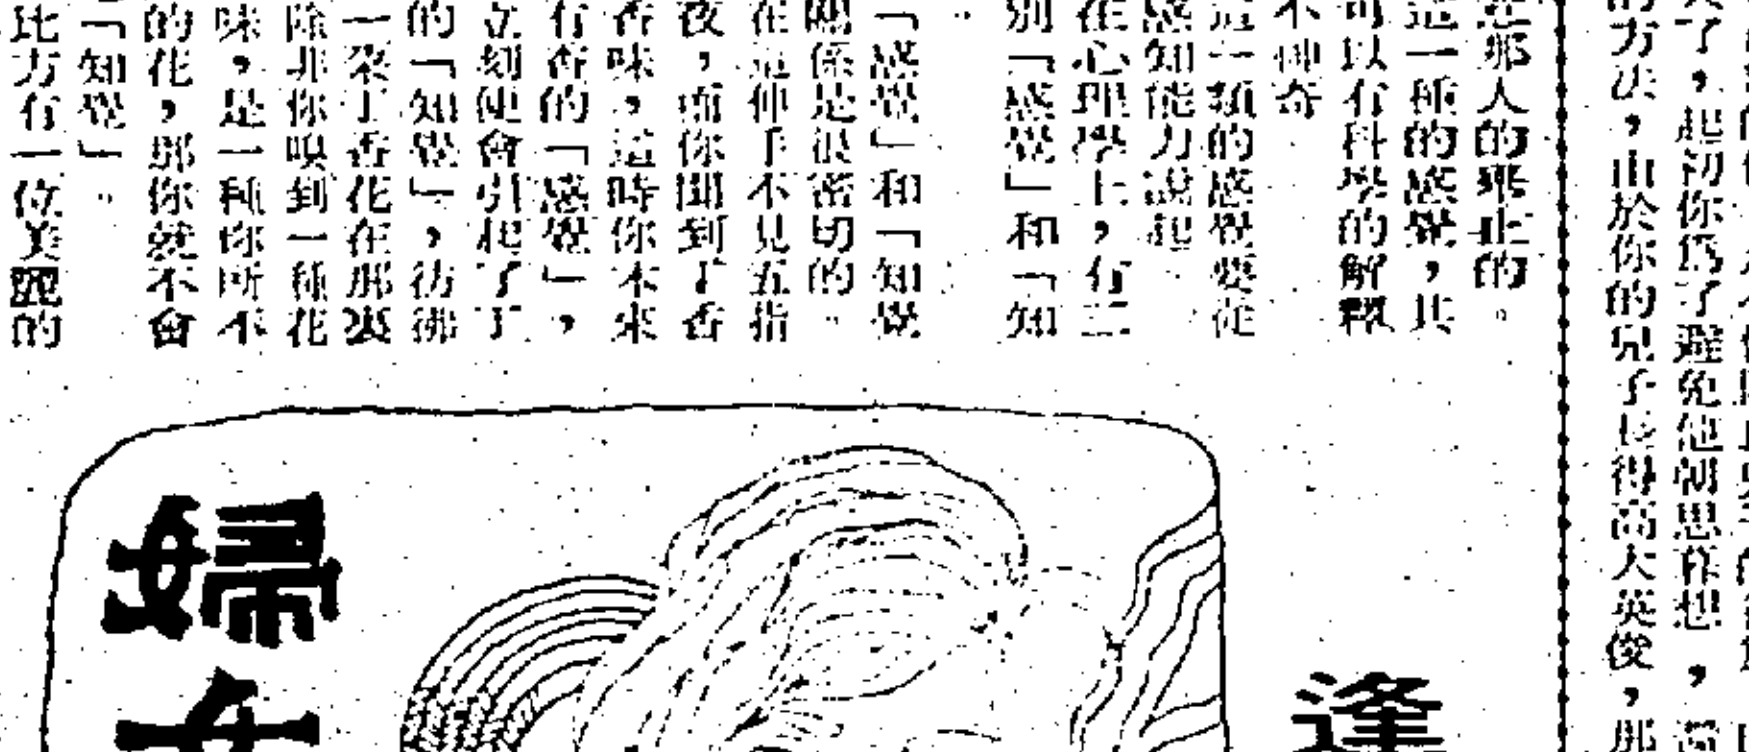 了，起初你爲了避免他朝思暮想，
方法，由於你的兒子長得高大英俊，那
那人的舉止的。
這一種的感覺，其
可以有科學的解釋
不神奇
這一類的感覺要從
感知能力說起
在心理學上，有二
別「感覺」和「知
「感覺」和「知覺
關係是很密切的。
在這伸手不見五指
夜，而你聞到了香
香味，這時你本來
有香的「感覺」，
立刻便會引起了丁
的「知覺」，彷彿
一朶丁香花在那裏
除非你嗅到一種花
味，是一種你所不
的花，那你就不會
「知覺」。
比方有一位美麗的
婦女
逢